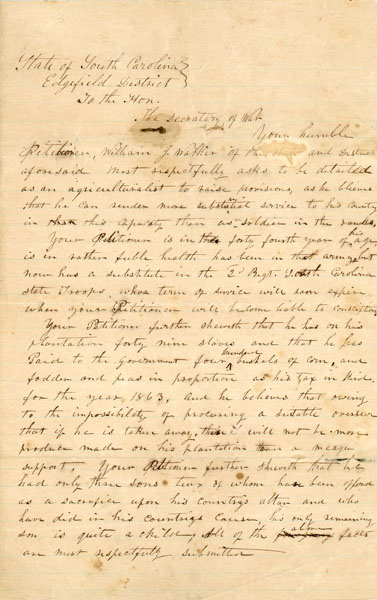 State of South Carolina }
Edgefield District }
To the Hon.
The Secretary of War
Your humble
Petitioner, William J. Walker of the and District
aforesaid most respectfully asks to be detailed
as an agriculturalist to raise provisions, as he believes
that he can render more substantial service to his country
in this capacity than as soldier in the ranks,
Your Petitioner is in the forty fourth year of his age
is in rather feble health has been in that army but
now has a substitute in the 2d Regt. South Carolina
State Troops, whose term of service will soon expire
when your Petitioner will become liable to conscription
Your Petitioner further sheweth that he has on his
plantation forty nine slaves and that he has
Paid to the government four hundred bushels of corn, and
fodder and peas in proportion as his tax in kind,
for the year 1863. And he believes that owing
to the impossibility of procuring a sutable overseer
that if he is taken away, there will not be more
produce made on his plantation than a meager
support. Your Petitioner further sheweth that he
had only three sons two of whom have been offered
as a sacrifice upon his Country's altar and who
have died in his Countrys Cause, his only remaining
son is quite a child, All of the above facts
are most respectfully submitted